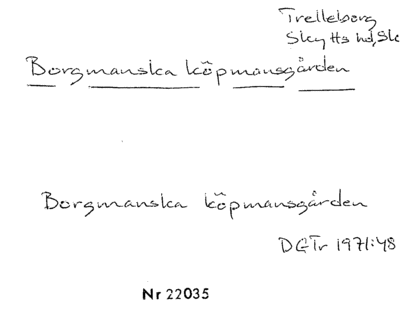 Trelleborg
Skytts hd, Sk
Borgmanska köpmansgården
Borgmanska köpmansgården
DGTr 1971:48
Nr 22035